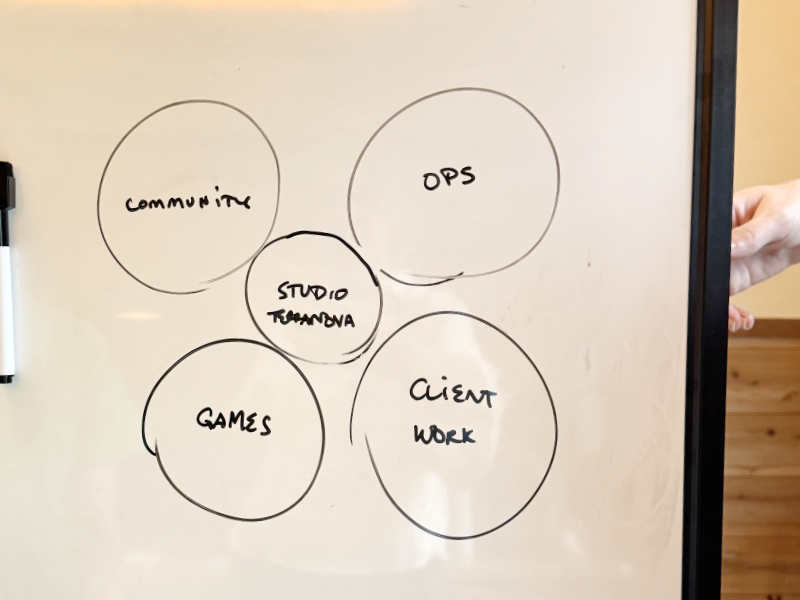 COMMUNITY
OPS
STUDIO
TERRANOVA
GAMES
CLIENT
WORK